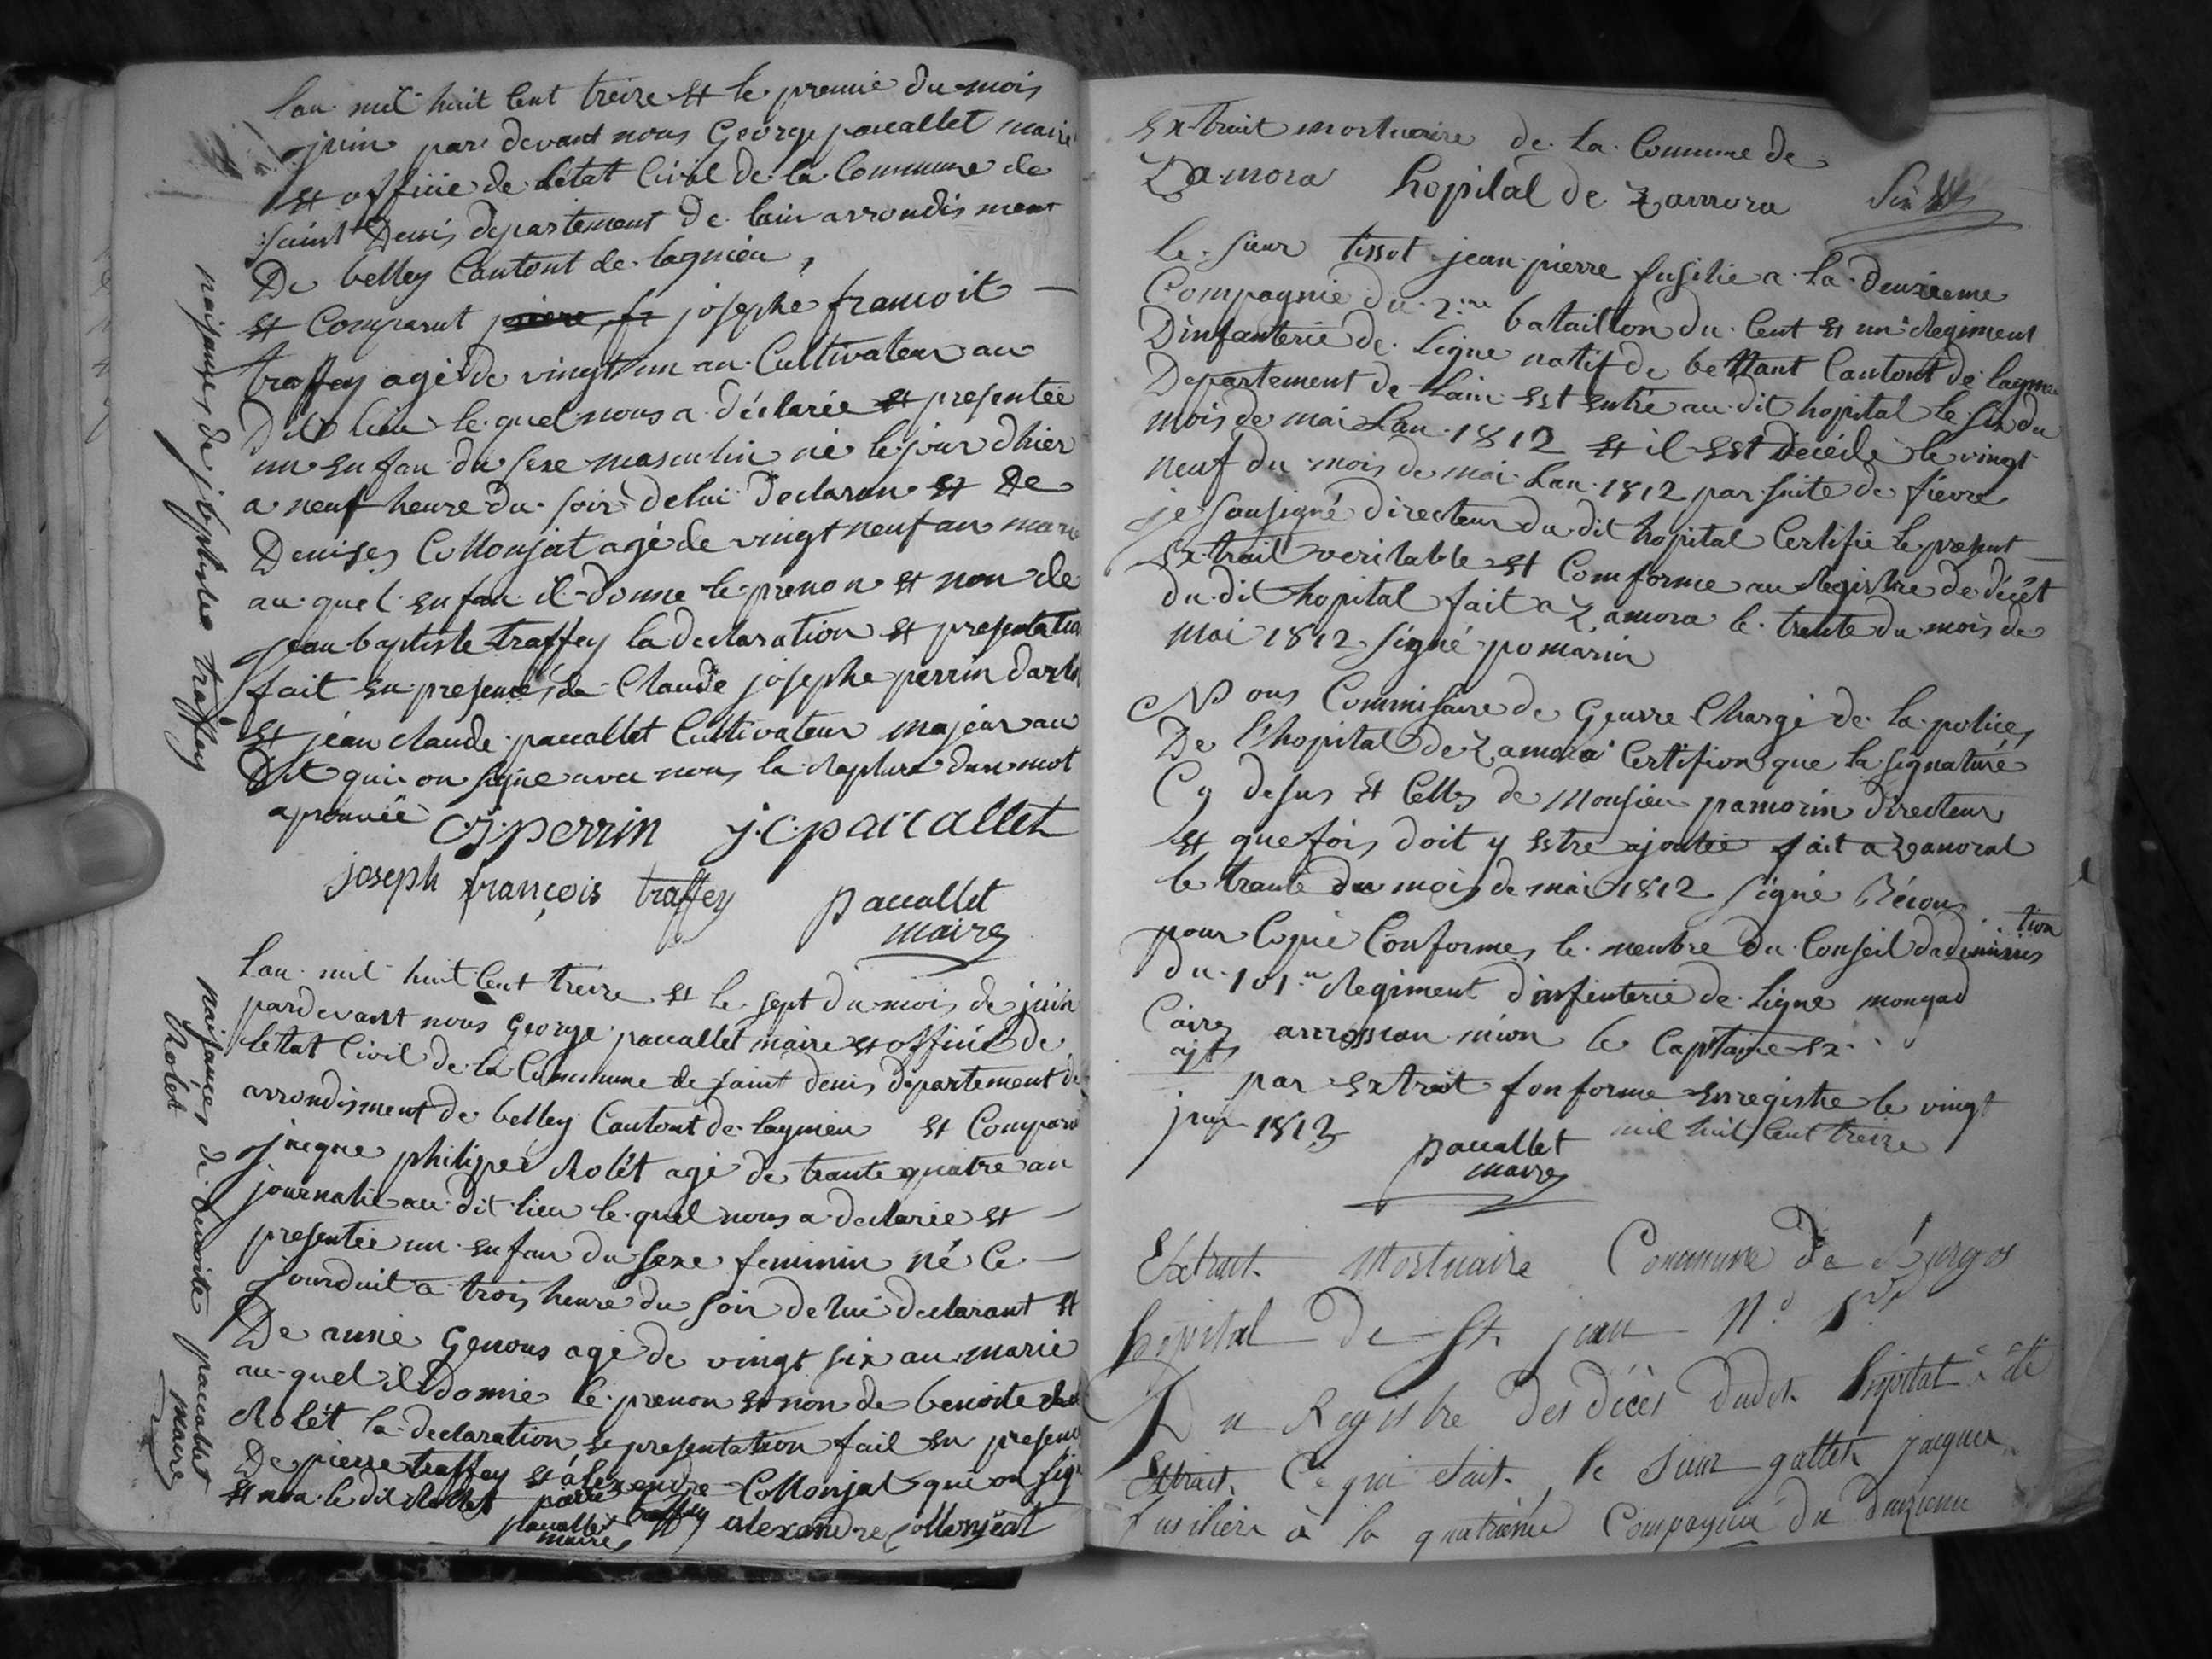 lan mil huit cent treize et le premie du mois
juin par devant nous George paccallet maire
et officie de létat Civil de la Commune de
saint Denis departement de lain arrondisment
De belley Cantont de lagnieu,
et Comparut josephe francoit
traffey agé de vingt un an Cultivateur au
Dit lieu le quel nous a déclarée et presentée
un enfan du sexe masculin né le jour dhier
a neuf heure du soir de lui declaran et De
Denises Collonjat agé de vingt neuf an marie
au quel enfan il donne le prenon et non de
jean baptiste traffey la declaration et presentation
fait en presence de Claude josephe perrin
et jean claude paccallet Cultivateur majeur au
Dit qui on signe avec nous la Rapture dun mot
aprouvée C.J. perrin j.c. paccallet
joseph françois traffey paccallet
maire
naissance de jean baptiste traffey
lan mil huit Cent treize et le sept du mois de juin
pardevant nous George paccallet maire et officié de
létat Civil de la Commune de saint denis departement de
arrondisment de belley Cantont de lagnieu et Comparu
jacque philippe Rolét agé de trante quatre an
journalie au dit lieu le quel nous a declarée et
presentée un enfan du sexe feminin né Ce
jourduit a trois heure du soir de lui declarant et
De anne Genous agé de vingt six an marié
au quel il donne le prenon et non de benoite
Rolét la declaration et presentation fait en presence
De pierre traffey et alexendre Collonjat qui on signé
et non le dit Rollet pierre traffey
paccallet alexandre Collonjeat
maire
naissances de benoite Rolét
paccallet
maire
Extrait mortuaire de la Commune de
Zamora hopital de Zamora
le sieur tissot jean pierre fusilié a la deuxieme
Compagnie du 2me bataillon du Cent et un Regiment
Dinfanterie de Ligne natif de bettant Cantont de lagnieu
Departement de Lain est entré au dit hopital le six du
mois de mai Lan 1812 et il est décédé le vingt
neuf du mois de mai Lan 1812 par suite de fievre
je sousigné directeur du dit hopital Certifie le present
Extrait veritable et Comforme au Registre de décét
du dit hopital fait a Zamora le trente du mois de
mai 1812 signé pomarin
Nous Commissaire de Geurre Chargé de la police
De lhopital de Zamora Certifion que la signature
Cy desus et Celle de Monsieu pamorin directeur
et que fois doit y estre ajoutée fait a Zamoral
le trante du mois de mai 1812 signé
pour Copie Conforme le menbre du Conseil dadministration
du 101me Regiment dinfenterie de Ligne
le Capitaine
par extrait fonforme enregistre le vingt
juin 1813 mil huit Cent treize
paccallet
maire
Extrait Mortuaire Commune de Burgos
hopital De St jean N°
Du Registre des décès dudit hopital à été
Extrait Ce qui Suit, le Sieur gallet jacques
fusilier à la quatrième Compagnie du